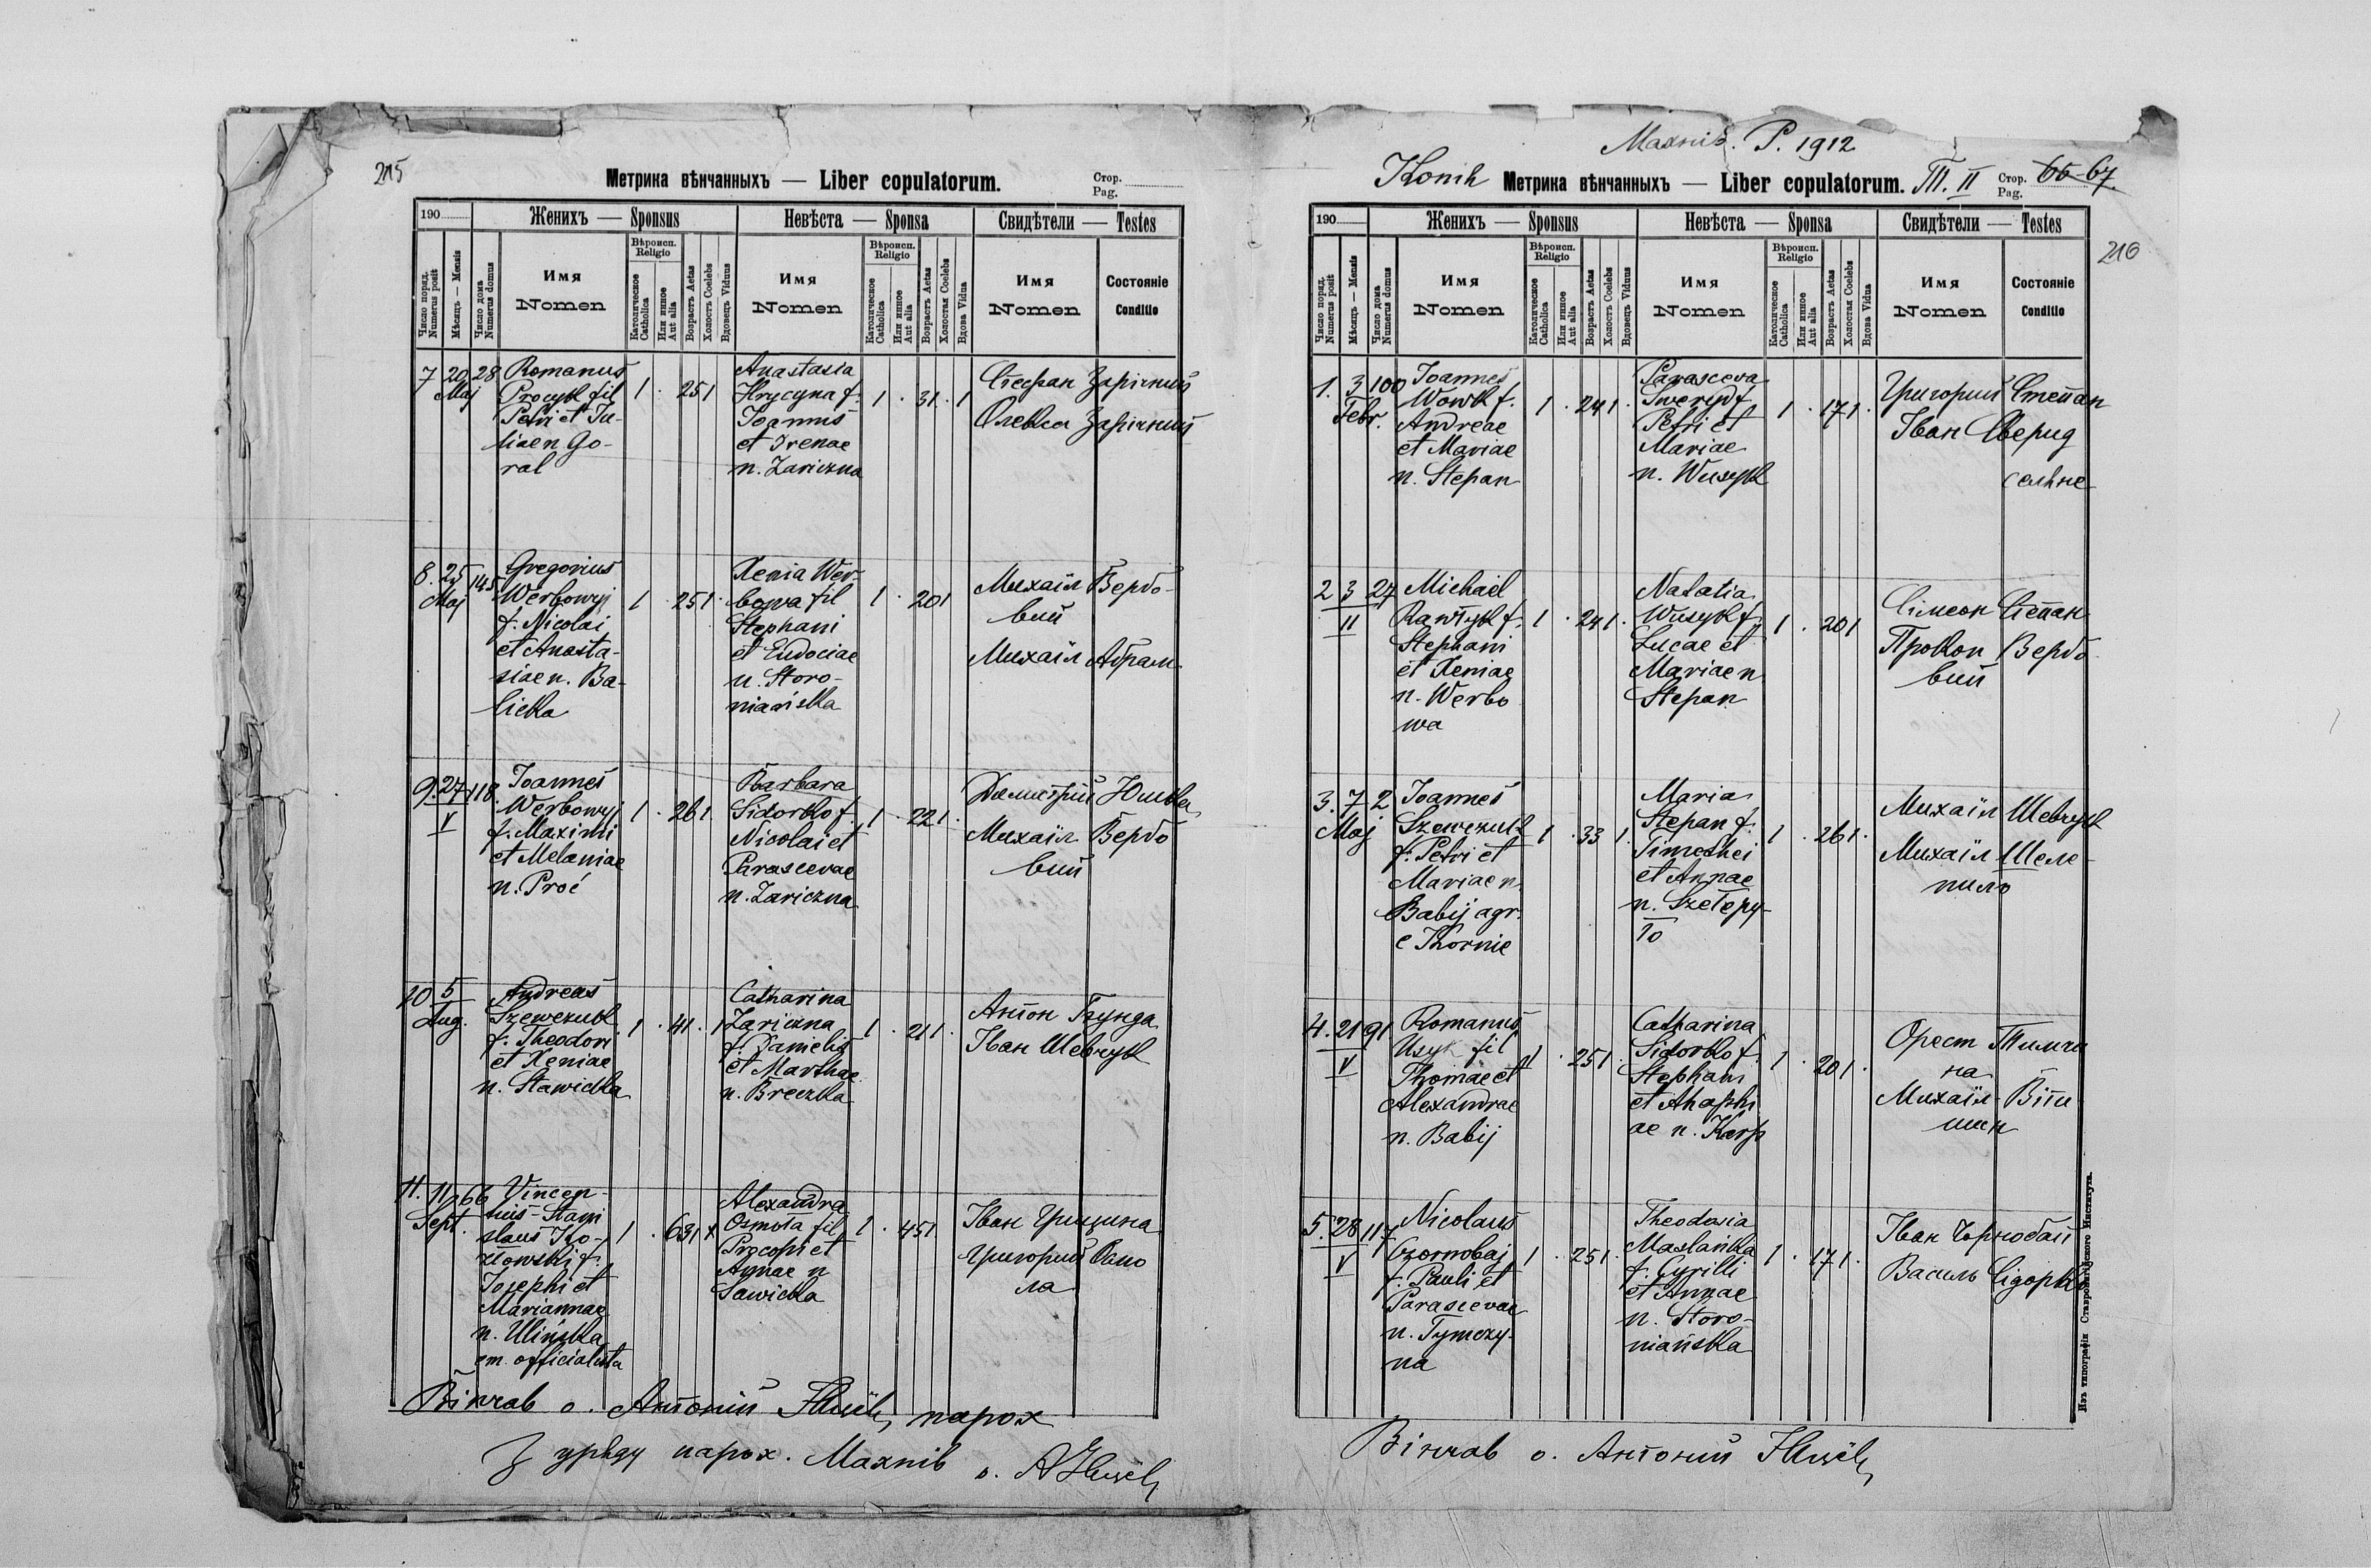 215
Метрика вѣнчанныхъ — Liber copulatorum.
Стор.
Pag.
190
Женихъ — Sponsus
Невѣста — Sponsa
Свидѣтели — Testes
Число поряд. Numerus posit
Мѣсяцъ — Mensis
Число дома Numerus domus
Имя
Nomen
Вѣроисп.
Religio
Католическое Catholica
Или инное Aut alia
Возрастъ Aetas
Холостъ Coelebs
Вдовецъ Viduus
Имя
Nomen
Вѣроисп.
Religio
Католическое Catholica
Или инное Aut alia
Возрастъ Aetas
Холостая Coelebs
Вдова Vidua
Имя
Nomen
Состоянie
Conditio
7 20 Maj 28
Romanus
Procyk fil
Petri et Ju-
liae n Go-
ral
1 . 25 1
Anastasia
Hrycyna f.
Joannis
et Irenae
n. Zariczna
1 . 31 . 1
Стефан Зарічний
Олекса Зарічний
8. 25 Maj 145
Gregorius
Werbowyj
f. Nicolai
et Anasta-
siae n. Ba-
licka
1 . 25 1 .
Xenia Wer-
bowa fil
Stephani
et Eudociae
n. Storo-
niańska
1 . 20 1
Михаіл Вербо-
вий
Михаіл Абрам
9. 27 V 118.
Joannes
Werbowyj
f. Maximi
et Melaniae
n. Proć
1 . 26 1
Barbara
Sidorko f.
Nicolai et
Parascevae
n. Zariczna
1 . 22 1 .
Димитрий
Михаіл Вербо
вий
10 5 Aug.
Andreas
Szewczuk
f. Theodori
et Xeniae
n. Stawicka
1 . 41 . 1
Catharina
Zariczna
f. Danielis
et Marthae
n. Breczka
1 . 21 1 .
Антон Гзунда
Іван Шевчук
11. 11 Sept. 66
Vincen-
tius - Stani
slaus Ko-
złowski f.
Josephi et
Mariannae
n. Ulińska
em. officialista
1 . 63 1
Alexandra
Osmoła fil
Procopi et
Annae n
Sawicka
1 . 45 1
Іван Грицина
Григорий Осмо
ла
Вінчав о. Антоний парох
З уряду парох. Махнів о.
Махнів. Р. 1912
Метрика вѣнчанныхъ — Liber copulatorum. T. II
Стор.
Pag.
65-67.
216
190
Женихъ — Sponsus
Невѣста — Sponsa
Свидѣтели — Testes
Число поряд. Numerus posit
Мѣсяцъ — Mensis
Число дома Numerus domus
Имя
Nomen
Вѣроисп.
Religio
Католическое Catholica
Или инное Aut alia
Возрастъ Aetas
Холостъ Coelebs
Вдовецъ Viduus
Имя
Nomen
Вѣроисп.
Religio
Католическое Catholica
Или инное Aut alia
Возрастъ Aetas
Холостая Coelebs
Вдова Vidua
Имя
Nomen
Состоянie
Conditio
1. 3 Febr. 100
Joannes
Wowk f.
Andreae
et Mariae
n. Stepan
1 . 24 1 .
Parasceva
Sweryd f.
Petri et
Mariae
n. Wusyk
1 . 17 1 .
Григорий Степан
Іван Сверид
селяне
2 3 II 27
Michael
Rawłyk f.
Stephani
et Xeniae
n. Werbo
wa
1 . 24 1 .
Natalia
Wusyk f.
Lucae et
Mariae n
Stepan
1 . 20 1
Сімеон Степан
Прокоп Вербо
вий
3. 7 Maj 2
Joannes
Szewczuk
f. Petri et
Mariae n.
Babij agr.
e Kornie
1 . 33 1 .
Maria
Stepan f.
Timothei
et Annae
n. Szełepy-
ło
1 . 26 1 .
Михаіл Шевчук
Михаіл Шеле-
пило
4. 21 V 91
Romanus
Usyk fil
Thomae et
Alexandrae
n. Babij
1 . 25 1 .
Catharina
Sidorko f.
Stephani
et Anaphi
ae n. Karp
1 . 20 1 .
Орест Тимчи
на
Михаіл Віти
шин
5. 28 V 117
Nicolaus
Czornobaj
f. Pauli et
Parascevae
n. Tymczy-
na
1 . 25 1 .
Theodosia
Maslańka
f. Cyrilli
et Annae
n. Storo-
niańska
1 . 17 1 .
Іван Чорнобай
Василь Сідорко
Вінчав о. Антоний
Изъ типографіи Ставропигійского Института.